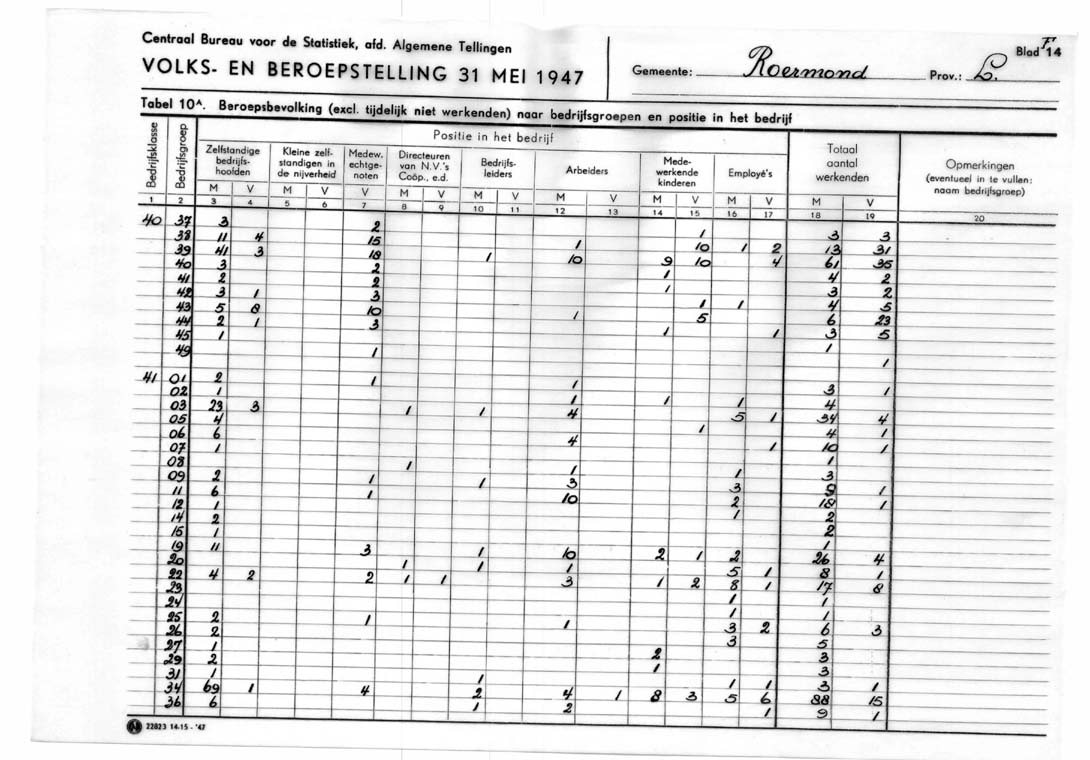 Centraal Bureau voor de Statistiek, afd. Algemene Tellingen
VOLKS- EN BEROEPSTELLING 31 MEI 1947
Gemeente: Roermond Prov.: L. Blad F14
Tabel 10A. Beroepsbevolking (excl. tijdelijk niet werkenden) naar bedrijfsgroepen en positie in het bedrijf
Bedrijfsklasse Bedrijfsgroep Positie in het bedrijf Totaal aantal werkenden Opmerkingen (eventueel in te vullen: naam bedrijfsgroep)
Zelfstandige bedrijfs-hoofden Kleine zelf-standigen in de nijverheid Medew. echtge-noten Directeuren van N.V.'s Coöp., e.d. Bedrijfs-leiders Arbeiders Mede-werkende kinderen Employé's
M V M V V M V M V M V M V M V M V
1 2 3 4 5 6 7 8 9 10 11 12 13 14 15 16 17 18 19 20
40 37 3 2 1 3 3
38 11 4 15 1 10 1 2 13 31
39 41 3 18 1 10 9 10 4 61 35
40 3 2 1 4 2
41 2 2 1 3 2
42 3 1 3 1 1 4 5
43 5 8 10 1 5 6 23
44 2 1 3 1 1 3 5
45 1 1
49 1 1
41 01 2 1 1 3 1
02 1 1 1 1 4
03 23 3 1 1 4 5 1 34 4
05 4 1 4 1
06 6 4 1 10 1
07 1 1
08 1 1 1 3
09 2 1 1 3 3 9 1
11 6 1 10 2 18 1
12 1 1 2
14 2 2
15 1 1
19 11 3 1 10 2 1 2 26 4
20 1 1 1 5 1 8 1
22 4 2 2 1 1 3 1 2 8 1 17 8
23 1 1
24 1 1
25 2 1 1 3 2 6 3
26 2 3 5
27 1 2 3
29 2 1 3
31 1 1 1 1 3 1
34 69 1 4 2 4 1 8 3 5 6 88 15
36 6 1 2 1 9 1
22823 14-15 - '47